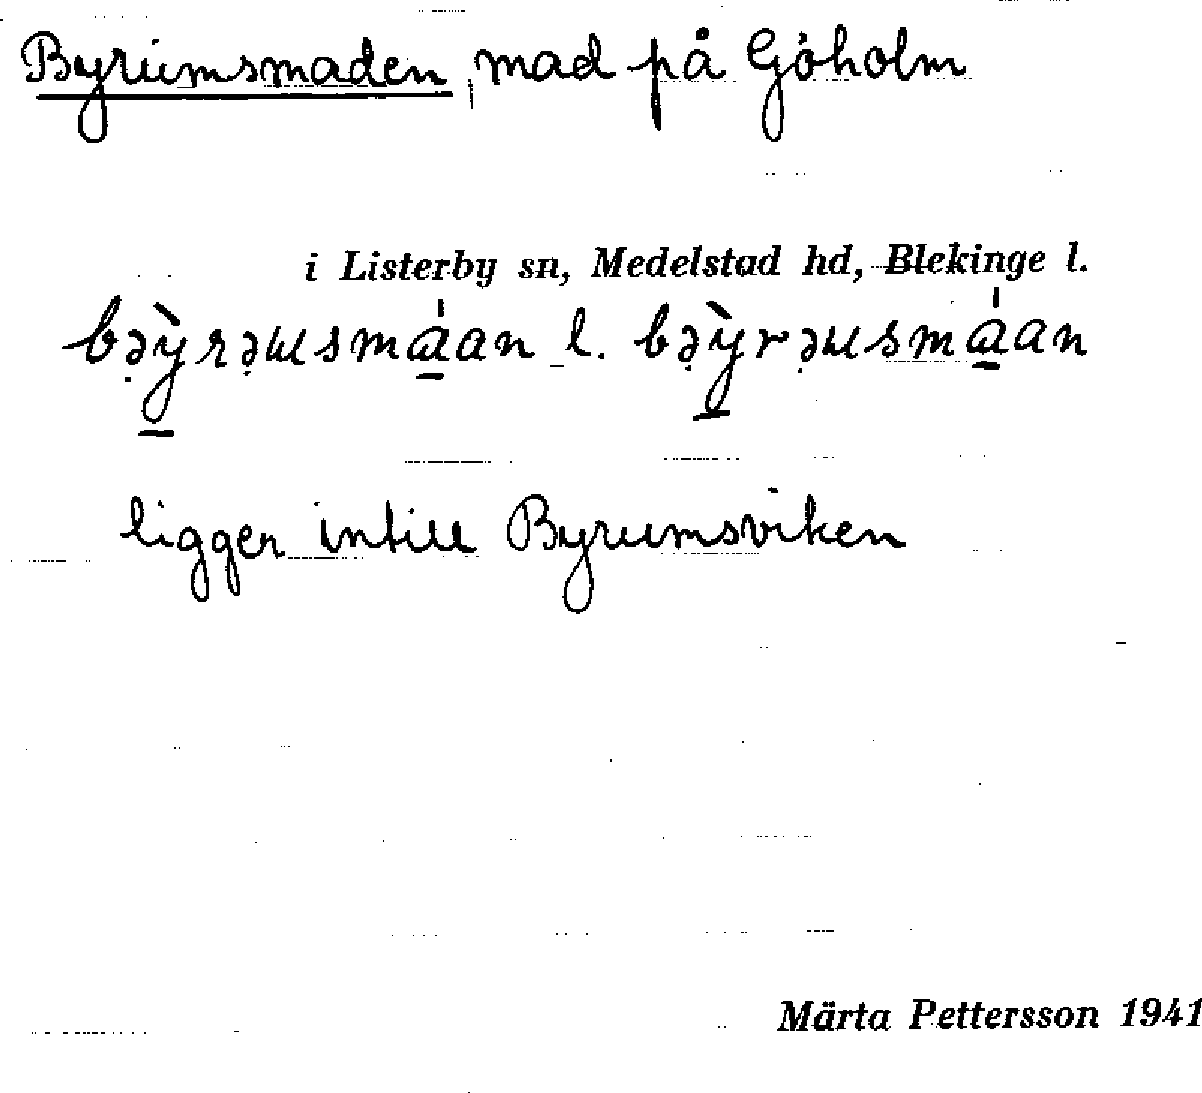 Byrumsmaden, mad på Göholm
i Listerby sn, Medelstad hd, Blekinge l.
bəỳ̠rəusmá̠an l. bəỳ̠rəusmá̠an
ligger intill Byrumsviken
Märta Pettersson 1941